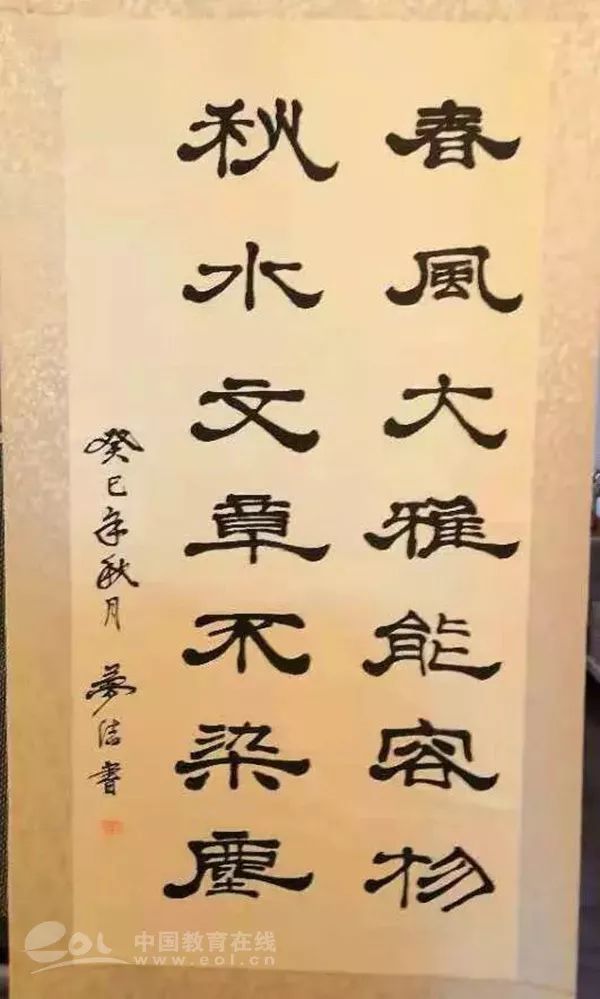 春風大雅能容物
秋水文章不染塵
癸巳年秋月 夢潔書
eol 中国教育在线
www.eol.cn